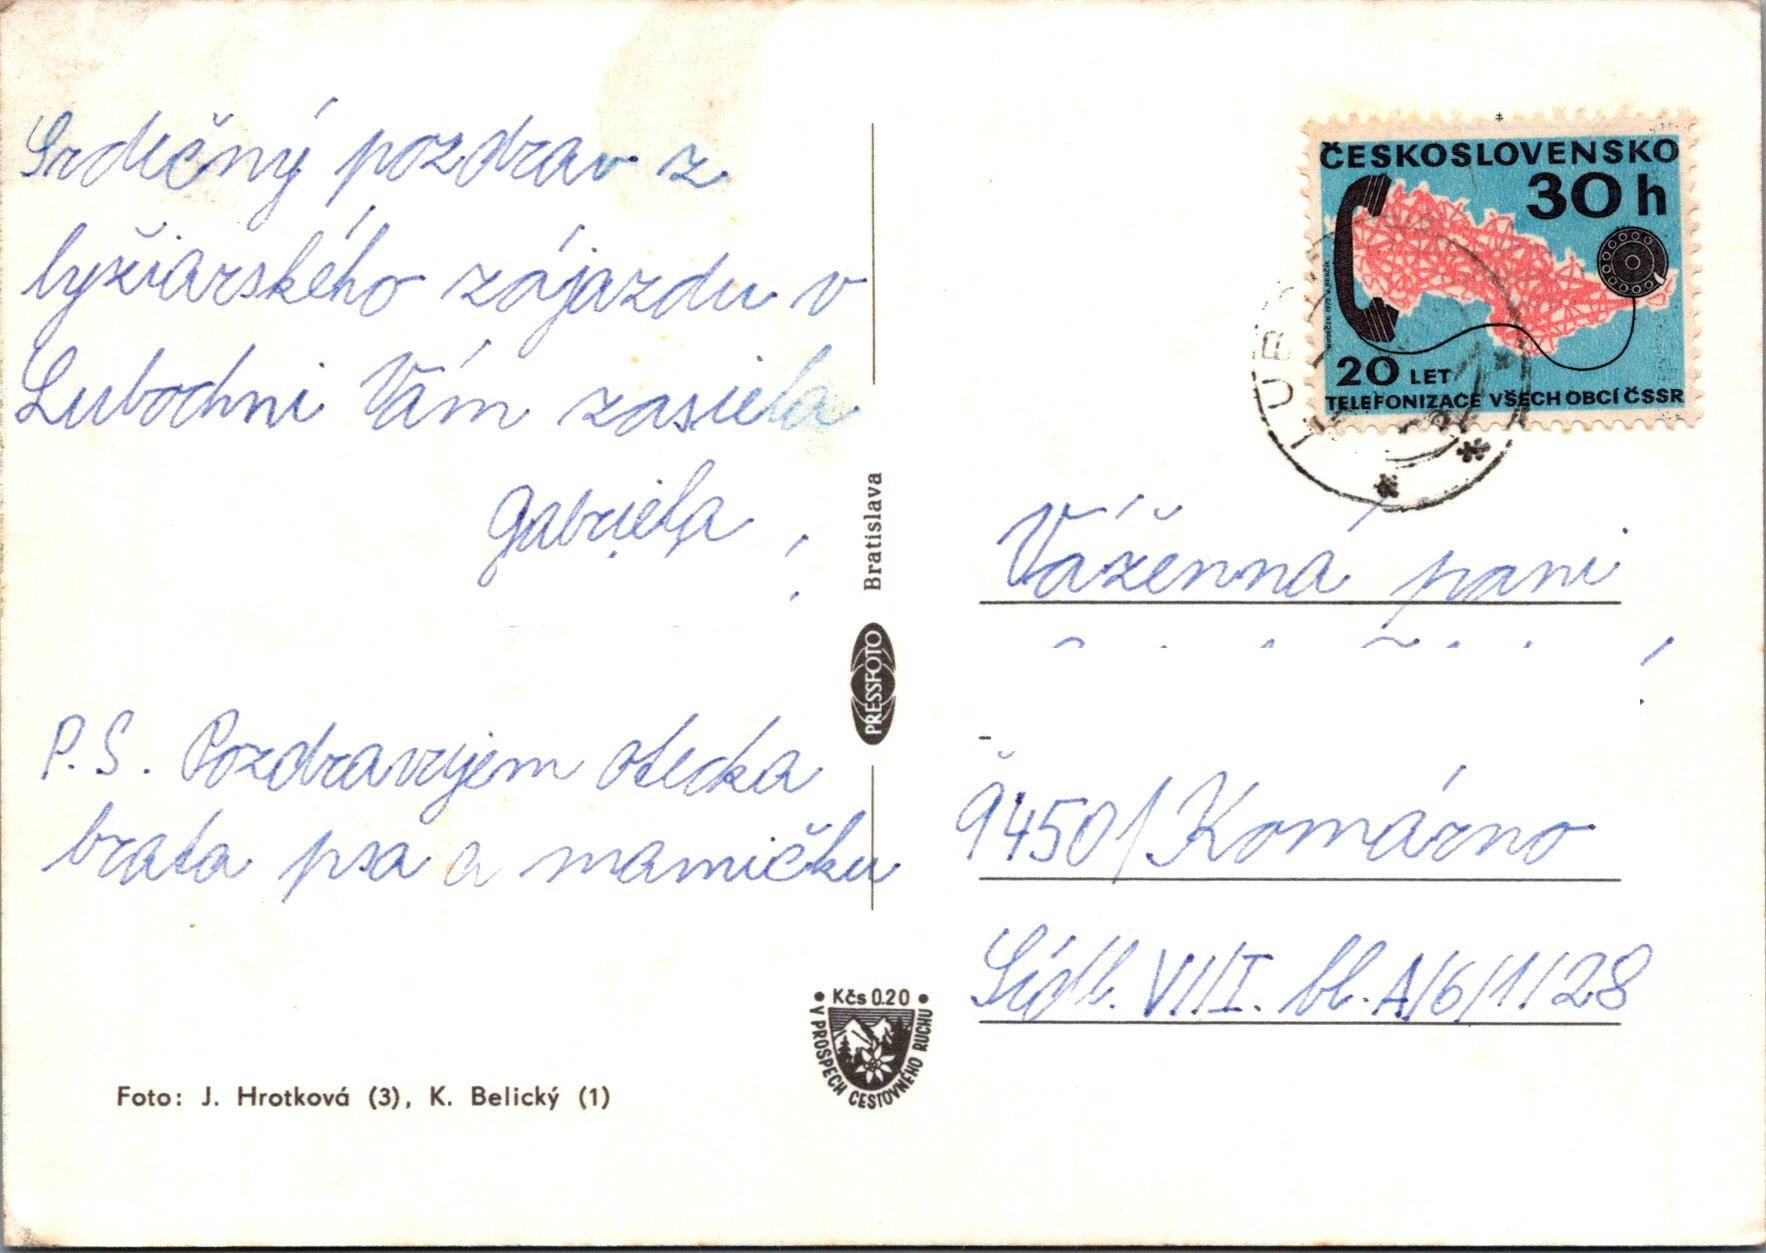 Srdečný pozdrav z
lyžiarského zájazdu v
Lubochni Vám zasiela
Gabriela
P.S. Pozdravujem otecka
brata psa a mamičku
Foto: J. Hrotková (3), K. Belický (1)
Bratislava
PRESSFOTO
• Kčs 0.20 •
V PROSPECH CESTOVNÉHO RUCHU
ČESKOSLOVENSKO
30 h
20 LET
TELEFONIZACE VŠECH OBCÍ ČSSR
Váženná pani
94501 Komárno
Sídl. VII/I. bl. A/6/1/28